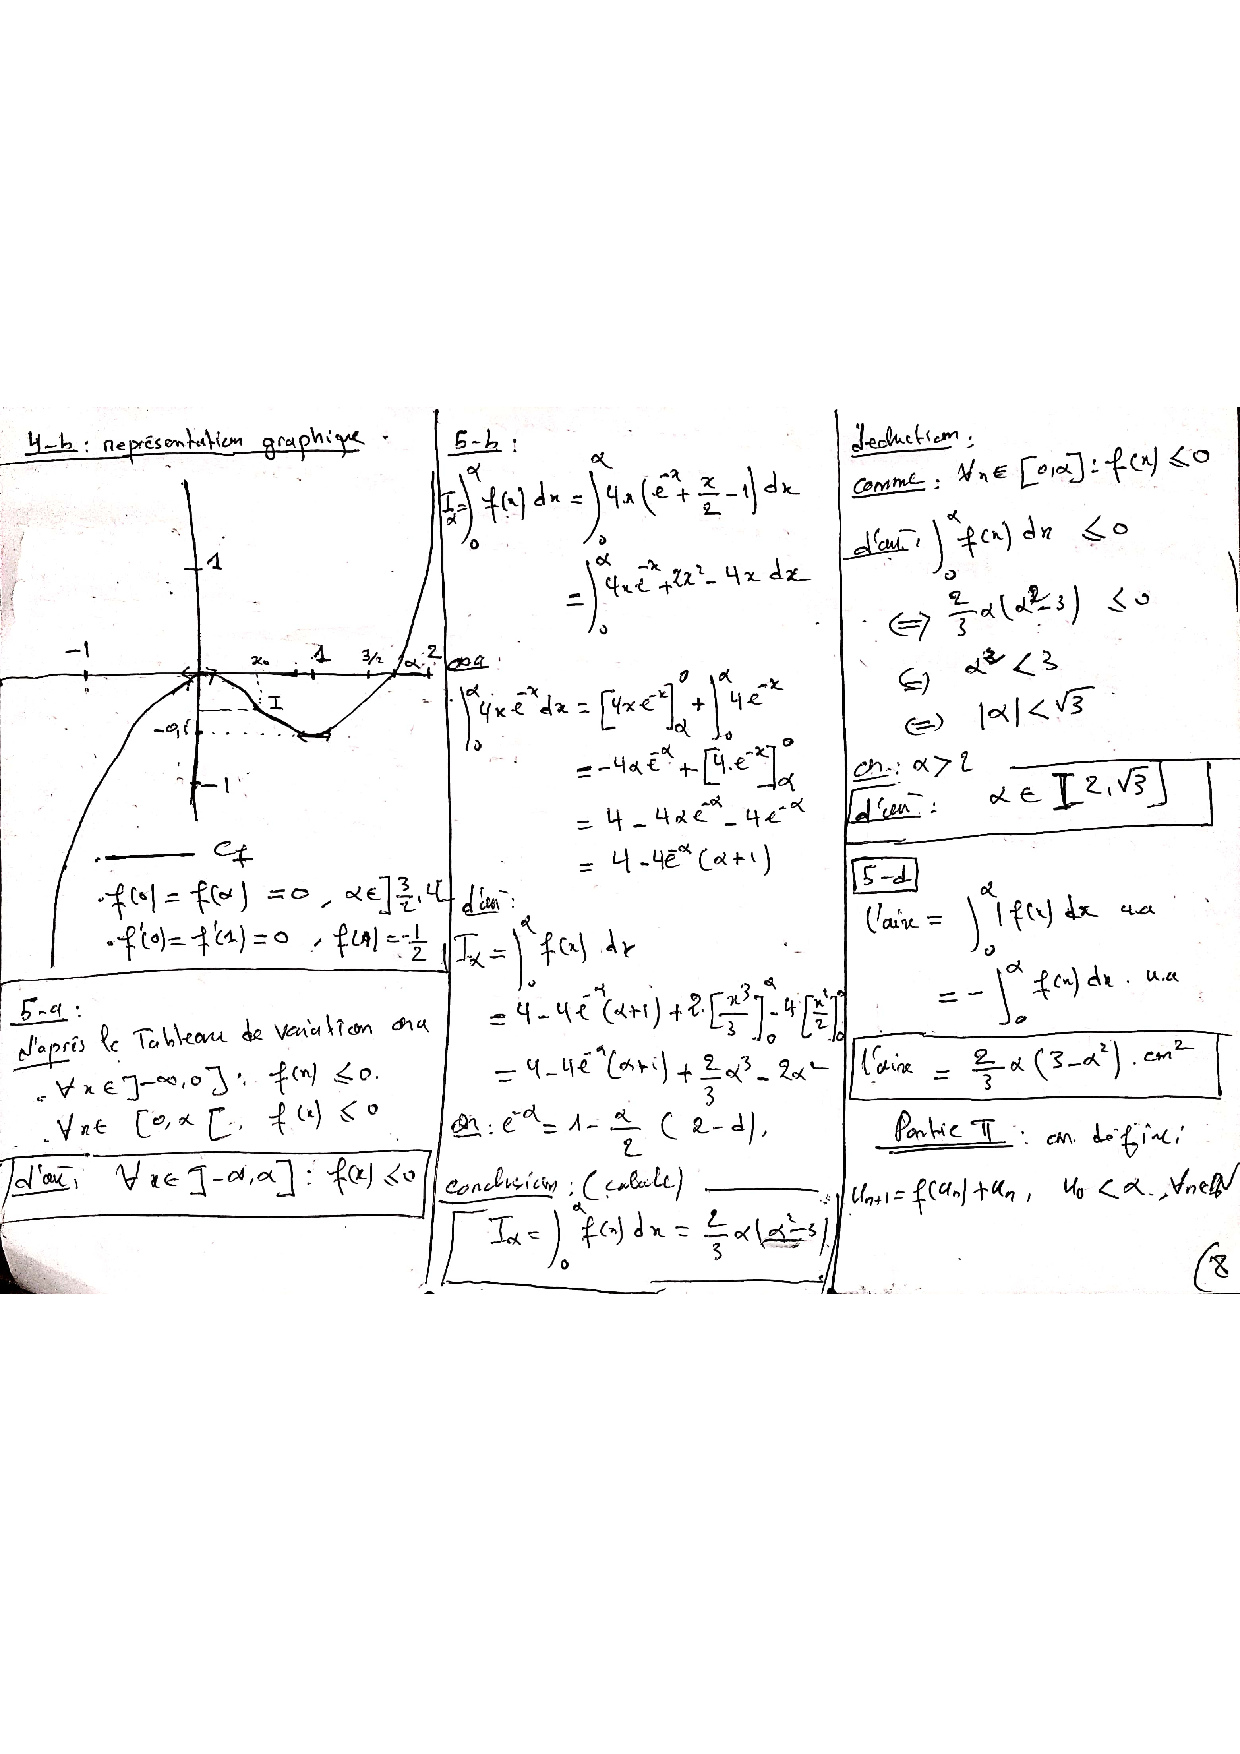 4-b : représentation graphique .
1
-1
x₀
1
3/2
α
2
I
-1
Cf
.f(0) = f(α) = 0 , α∈]3/2, 2[
.f'(0) = f'(1) = 0 , f(1) = -1/2
5-a :
d'après le Tableau de variation on a
. ∀x∈]-∞,0] : f(x) ≤ 0.
. ∀x∈ [0,α[, f(x) ≤ 0
d'où, ∀x∈]-∞,α] : f(x) ≤ 0
5-b :
Iα = ∫₀^α f(x) dx = ∫₀^α 4x(e^-x + x/2 - 1) dx
= ∫₀^α 4xe^-x + 2x² - 4x dx
on a :
∫₀^α 4xe^-x dx = [4xe^-x]_α^0 + ∫₀^α 4e^-x
= -4αe^-α + [4.e^-x]_α^0
= 4 - 4αe^-α - 4e^-α
= 4 - 4e^-α (α+1)
d'où :
Iα = ∫₀^α f(x) dx
= 4 - 4e^-α (α+1) + 2.[x³/3]_0^α - 4[x²/2]_0^α
= 4 - 4e^-α (α+1) + 2/3 α³ - 2α²
or : e^-α = 1 - α/2 (2-d),
conclusion : (calculs)
Iα = ∫₀^α f(x) dx = 2/3 α(α²-3)
deduction :
comme : ∀x∈ [0,α] : f(x) ≤ 0
d'où, ∫₀^α f(x) dx ≤ 0
⇔ 2/3 α(α²-3) ≤ 0
⇔ α² < 3
⇔ |α| < √3
or : α > 2
d'où : α ∈ [2,√3]
5-d
l'aire = ∫₀^α |f(x)| dx u.a
= - ∫₀^α f(x) dx . u.a
l'aire = 2/3 α (3-α²) . cm²
Partie II : on définie
u_n+1 = f(u_n) + u_n , u₀ < α , ∀n∈ℕ
8